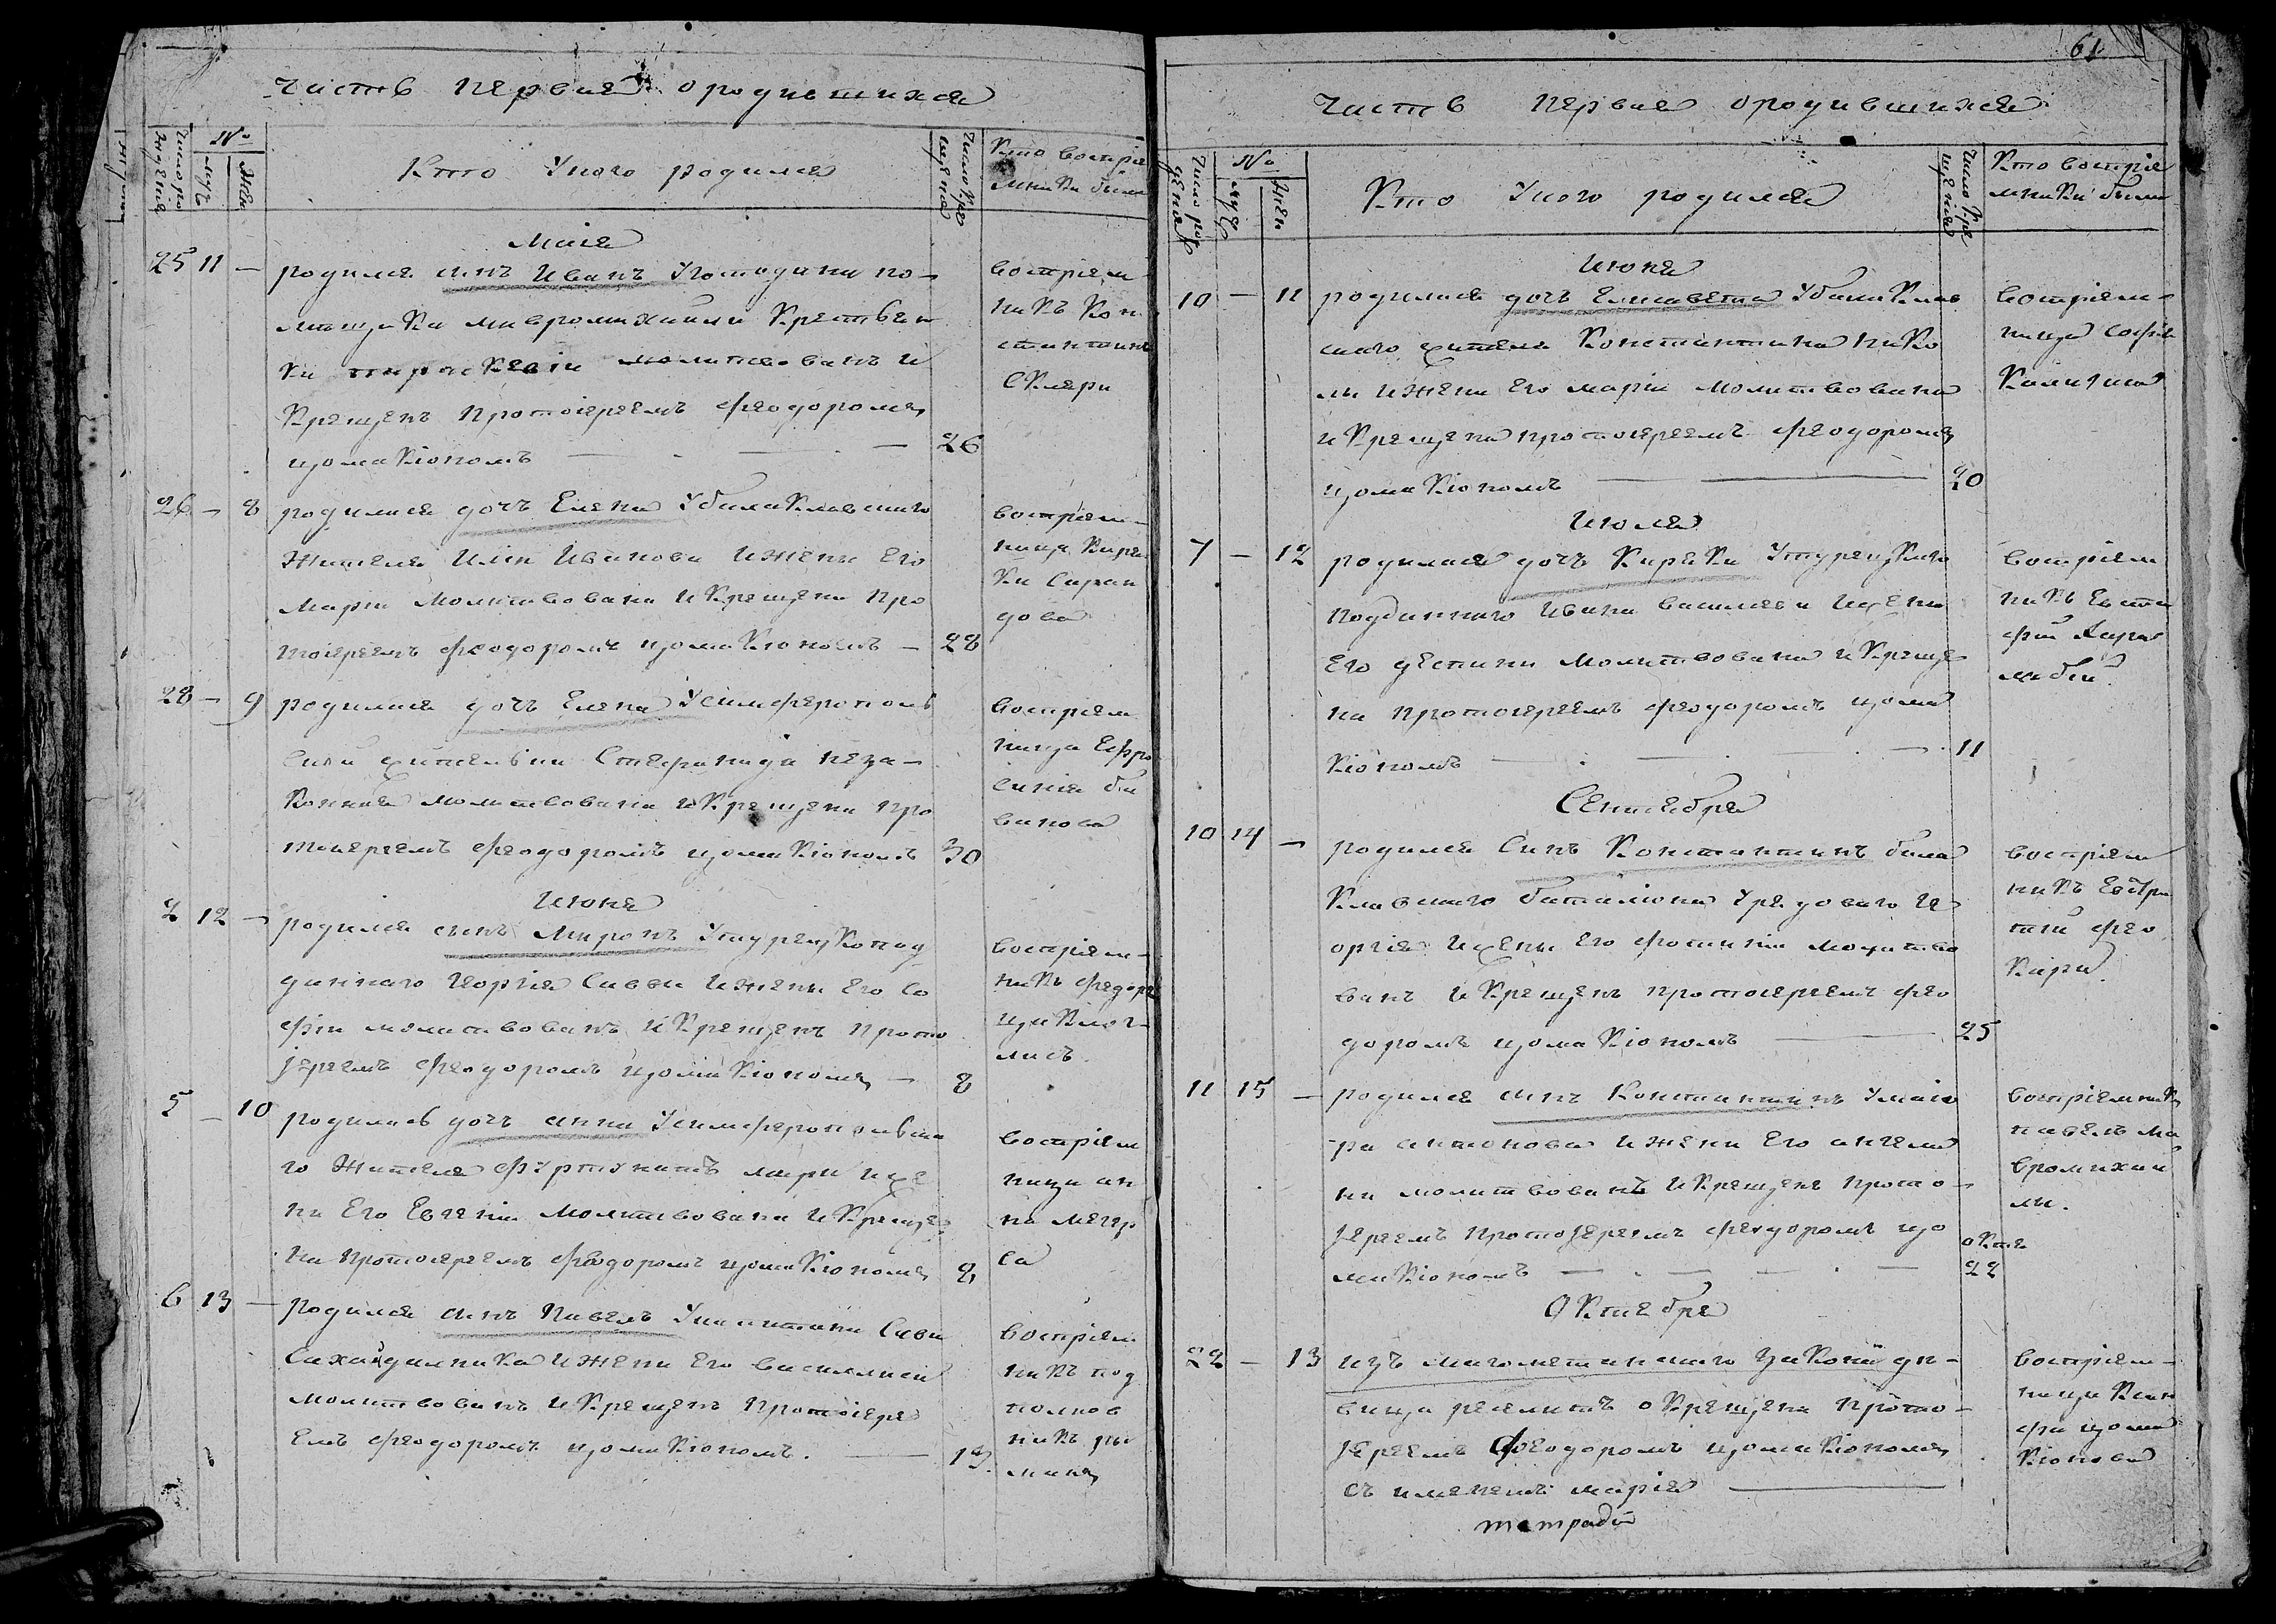 Часть первая о родившихся
Число рождения
№
Муж
Жен
Кто у кого родился
Число крещения
Кто восприемники были
Маiя
25 11 — родился сынъ Иванъ у господина по-
мещика Мавромихаили крествян
ки Параскевiи молитвованъ и
крещенъ протоiереемъ Феодоромъ
Цомакiономъ — 26
восприем-
никъ Кон
стантинъ
Склери
26 — 8 родилися дочъ Елена у балаклавскаго
жителя Илiи Иванова и жены его
Марiи молитвована и крещена про
тоiереемъ Феодоромъ Цомакiономъ — 28
восприем-
ница Кирiа
ки Саран
дова
28 — 9 родилися дочъ Елена у симферополь
ской жителвки Стефанида неза-
конная молитвована и крещена про
тоiереемъ Феодоромъ Цомакiономъ 30
восприем
ница Ефро
синiя
Июня
2 12 — родился сынъ Миронъ у турецко под
даннаго Георгiя Саввы и жены его Со
фiи молитвованъ и крещенъ прото
iереемъ Феодоромъ Цомакiономъ — 8
восприем-
никъ Федоръ
5 — 10 родилась дочъ Анна у симферополвска
го жителя Фуртунатъ Мари и же
ны его Евгенiи молитвована и креще
на протоiереемъ Феодоромъ Цомакiономъ 8
восприем
ница Ан
на
6 13 — родился сынъ Павелъ у капитана Савы
Сахайдалника и жены его Василиси
молитвованъ и крещенъ протоiере
емъ Феодоромъ Цомакiономъ. — 13
восприем
никъ под
полков
никъ
61
Часть первая о родившихся
Число рождена
№
муж
жен
Кто у кого родился
Число крещения
Кто восприемники были
Июня
10 — 11 родилися дочъ Елисавета у балаклав
скаго жителя Константина Нико
лы и жены его Марiи молитвована
и крещена протоiереемъ Феодоромъ
Цомакiономъ — 20
восприем-
ница Софiя
Июля
7 — 12 родилися дочъ Кирiаки у турецкаго
подданнаго Ивана Василева и жены
его Деспини молитвована и креще
на протоiереемъ Феодоромъ Цома
кiономъ — 11
восприем
никъ Евста
фiй
Сентября
10 14 — родился сынъ Константинъ бала
клавскаго баталiона у рядоваго Ге
оргiя и жены его Фотинiи молитво
ванъ и крещенъ протоiереемъ Фео
доромъ Цомакiономъ — 25
восприем
никъ Евстра
тий Фео
кари
11 15 — родился сынъ Константинъ у маiо
ра Антонова и жены его Ангели
ни молитвованъ и крещенъ прото-
iереемъ протоiереемъ Феодоромъ Цо
макiономъ — октя 22
восприемникъ
Павелъ Ма
вромихаи
ли.
Октября
22 — 13 изъ магометанскаго закона де-
вица окрещена прото-
iереемъ Феодоромъ Цомакiономъ
съ именемъ Марiя —
восприем-
ница
Цома
кiонова
тетради